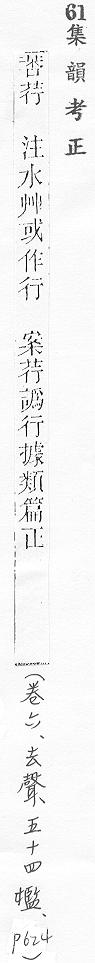 61集韻考正
荇 注水艸或作行 案荇譌行據類篇正
(卷六、去聲、五十四檻、p624)